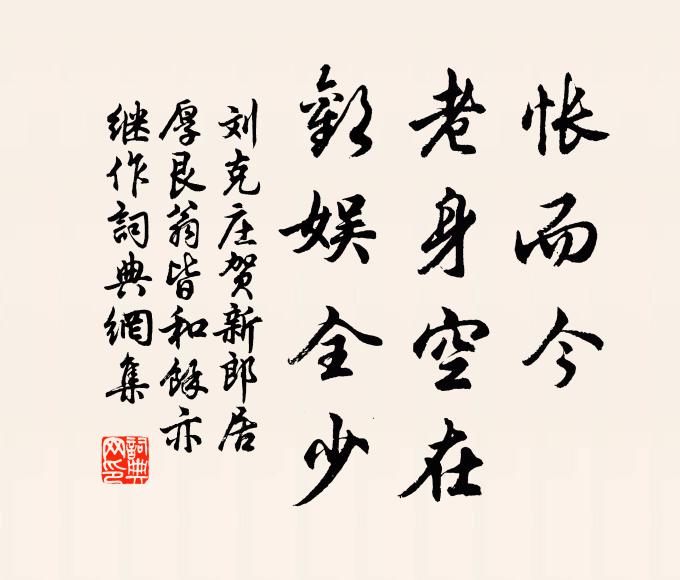 悵而今
老身空在
歡娱全少
刘克庄贺新郎居
厚艮翁皆和馀亦
继作詞典網集
詞典網印